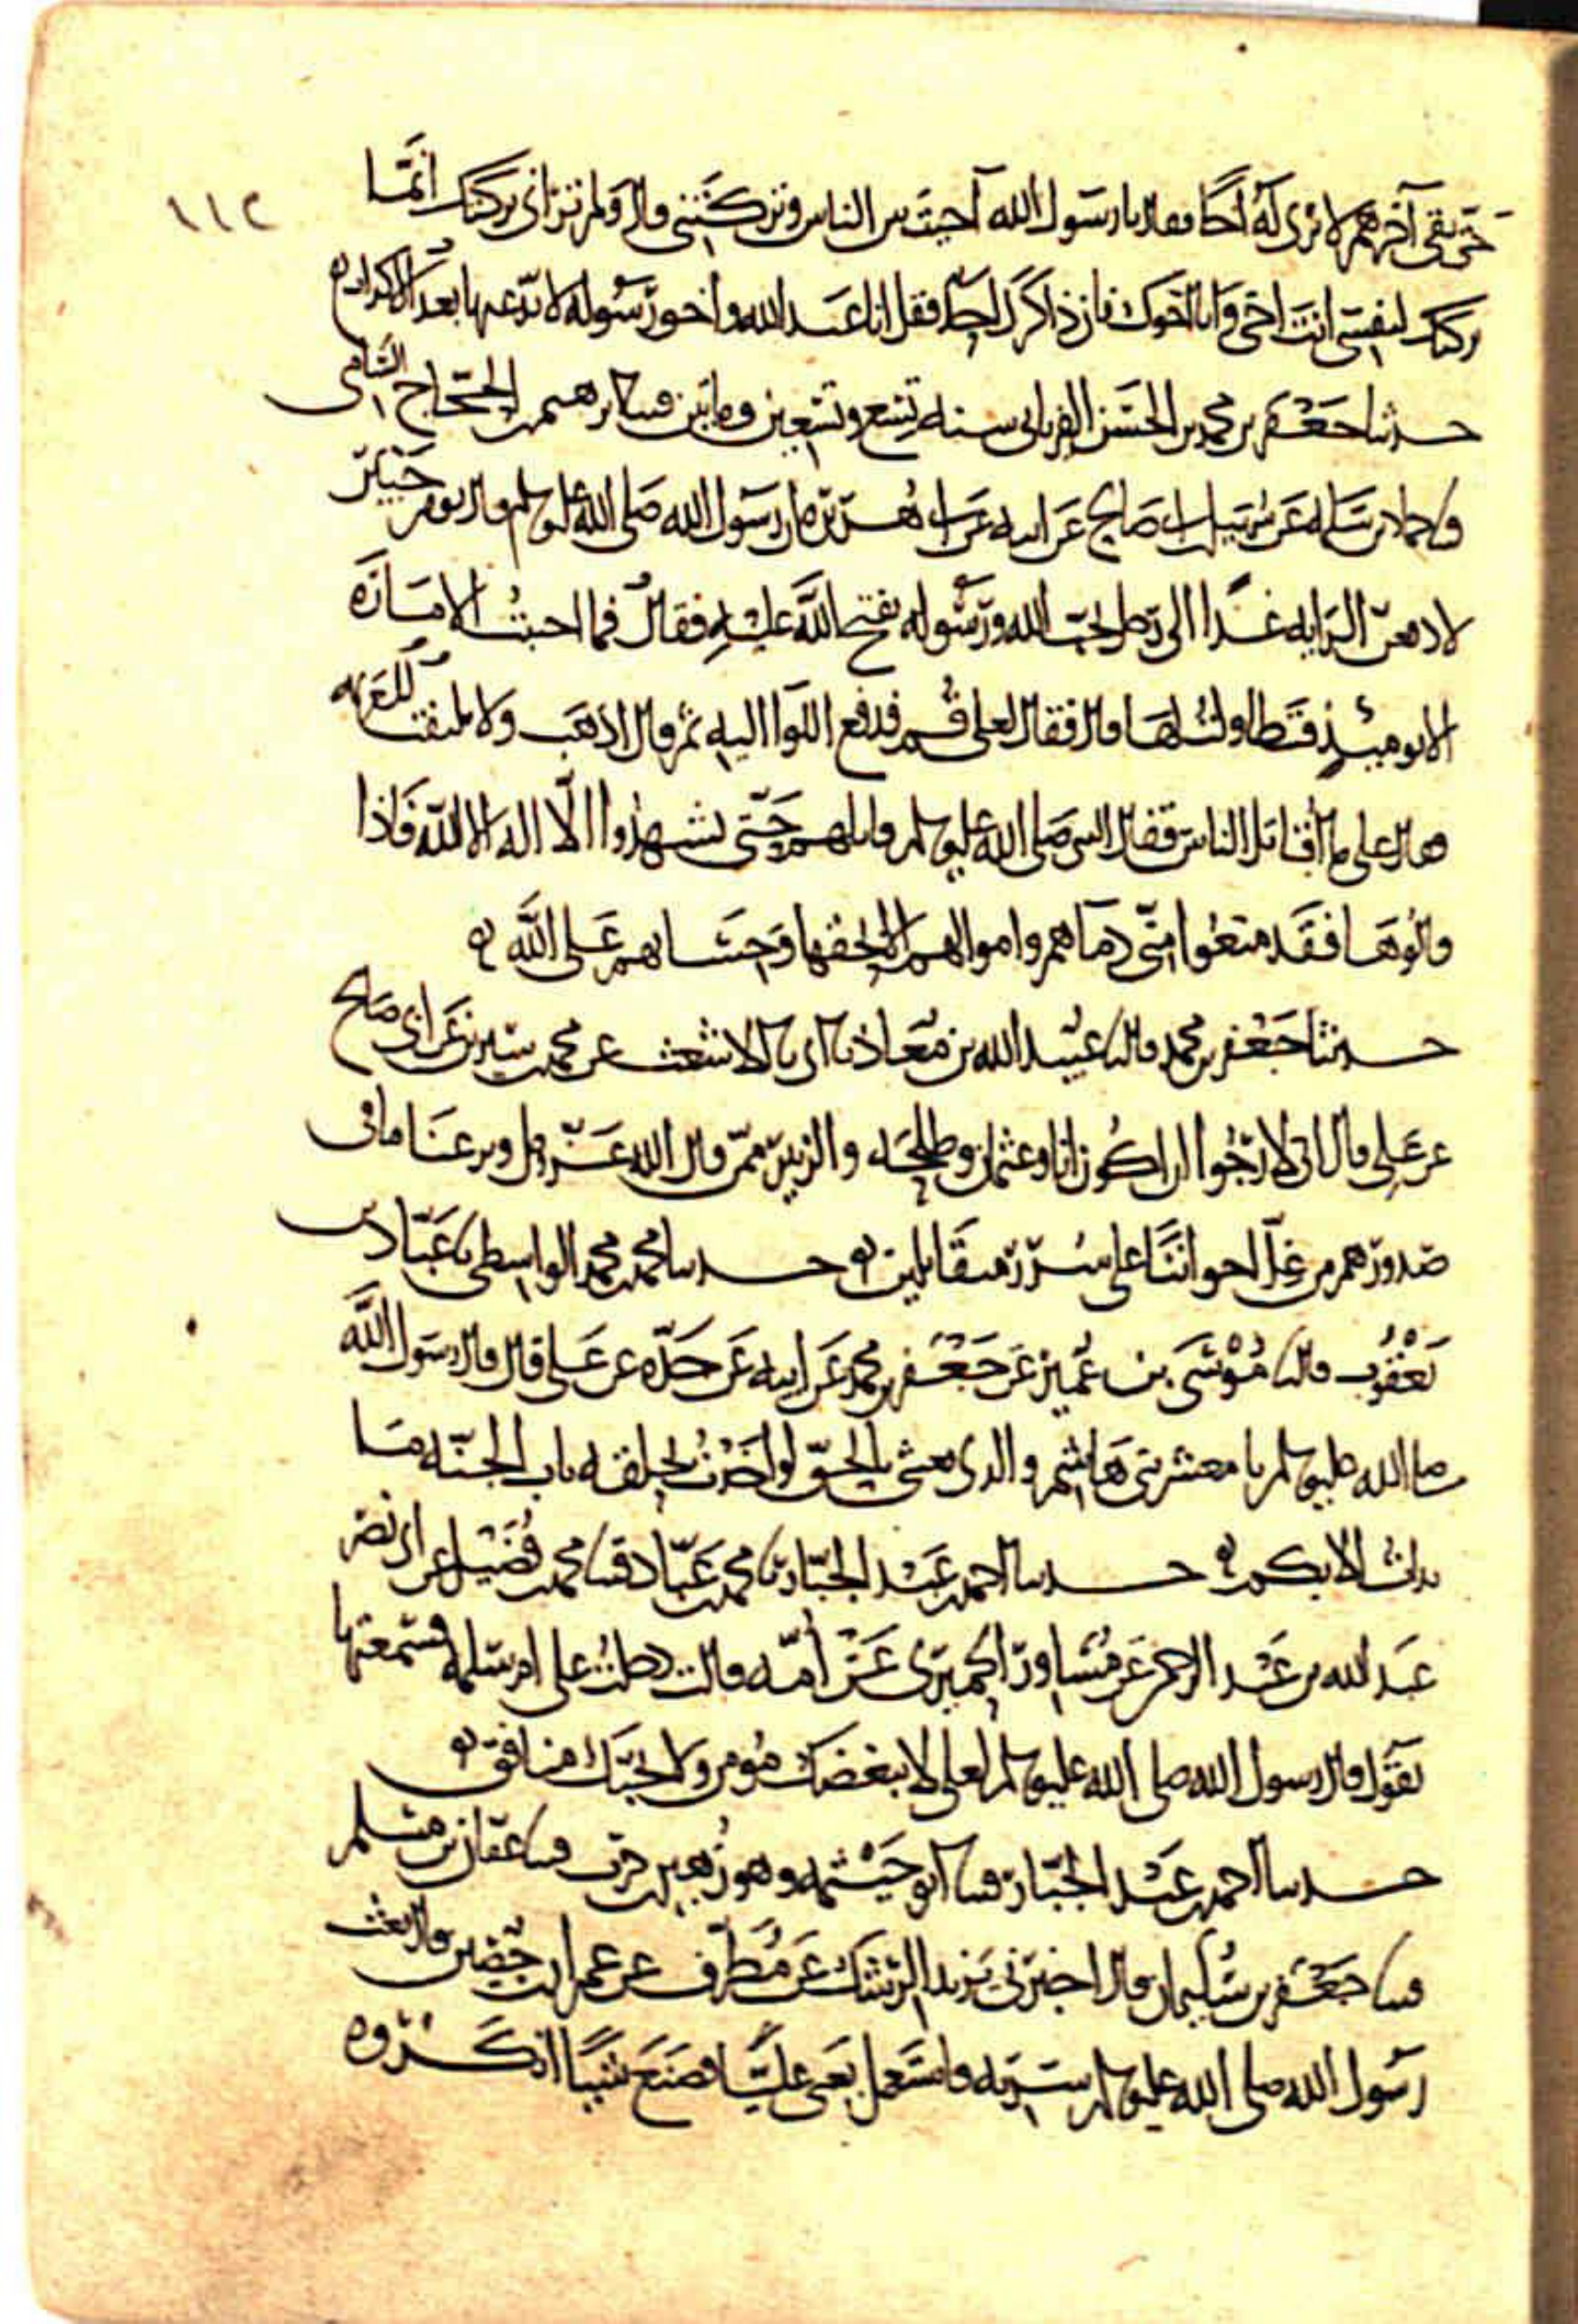 ١١٢
حتى بقي آخرهم لا يرى له أخا فقال يا رسول الله آخيت بين الناس وتركتني قال ولم تراني تركتك إنما
تركتك لنفسي أنت أخي وأنا أخوك فإن ذاكرك أحد فقل أنا عبد الله وأخو رسوله لا يدعيها بعدك إلا كذاب
حدثنا جعفر بن محمد بن الحسن الفريابي سنة تسع وتسعين ومايتين قثنا إبرهيم بن الحجاج الشامي
قثنا حماد بن سلمة عن سهيل بن أبي صالح عن أبيه عن أبي هريرة أن رسول الله صلى الله عليه وسلم قال يوم خيبر
لأدفعن الراية غدا إلى رجل يحب الله ورسوله يفتح الله عليه فقال فما أحببت الإمارة
إلا يومئذ فتطاولت لها قال فقال لعلي قم فدفع اللوا إليه ثم قال اذهب ولا تلتفت للعزمة
فقال علي ما أقاتل الناس فقال النبي صلى الله عليه وسلم قاتلهم حتى يشهدوا ألا إله إلا الله فإذا
قالوها فقد منعوا مني دماهم وأموالهم إلا بحقها وحسابهم على الله
حدثنا جعفر بن محمد قال نا عبيد الله بن معاذ نا أبي نا الأشعث عن محمد بن سيرين عن أبي صالح
عن علي قال إني لأرجوا أن أكون أنا وعثمان وطلحة والزبير ممن قال الله عز وجل ونزعنا ما في
صدورهم من غل إخوانا على سرر متقابلين حدثنا محمد بن محمد الواسطي نا عباد بن
يعقوب قال نا موسى بن عمير عن جعفر بن محمد عن أبيه عن جده عن علي قال قال رسول الله
صلى الله عليه وسلم يا معشر بني هاشم والذي بعثني بالحق لو أخذت بحلقة باب الجنة ما
بدأت إلا بكم حدثنا أحمد بن عبد الجبار نا محمد بن عباد قثنا محمد بن فضيل عن أبي نصر
عبد الله بن عبد الرحمن عن مساور الحميري عن أمه قالت دخلت على أم سلمة فسمعتها
تقول قال رسول الله صلى الله عليه وسلم لعلي لا يبغضك مؤمن ولا يحبك منافق
حدثنا أحمد بن عبد الجبار قثنا أبو خيثمة وهو زهير بن حرب قثنا عفان بن مسلم
قثنا جعفر بن سليمان قال أخبرني يزيد الرشك عن مطرف عن عمران بن حصين قال بعث
رسول الله صلى الله عليه وسلم سرية واستعمل يعني عليا فصنع شيئا أنكروه